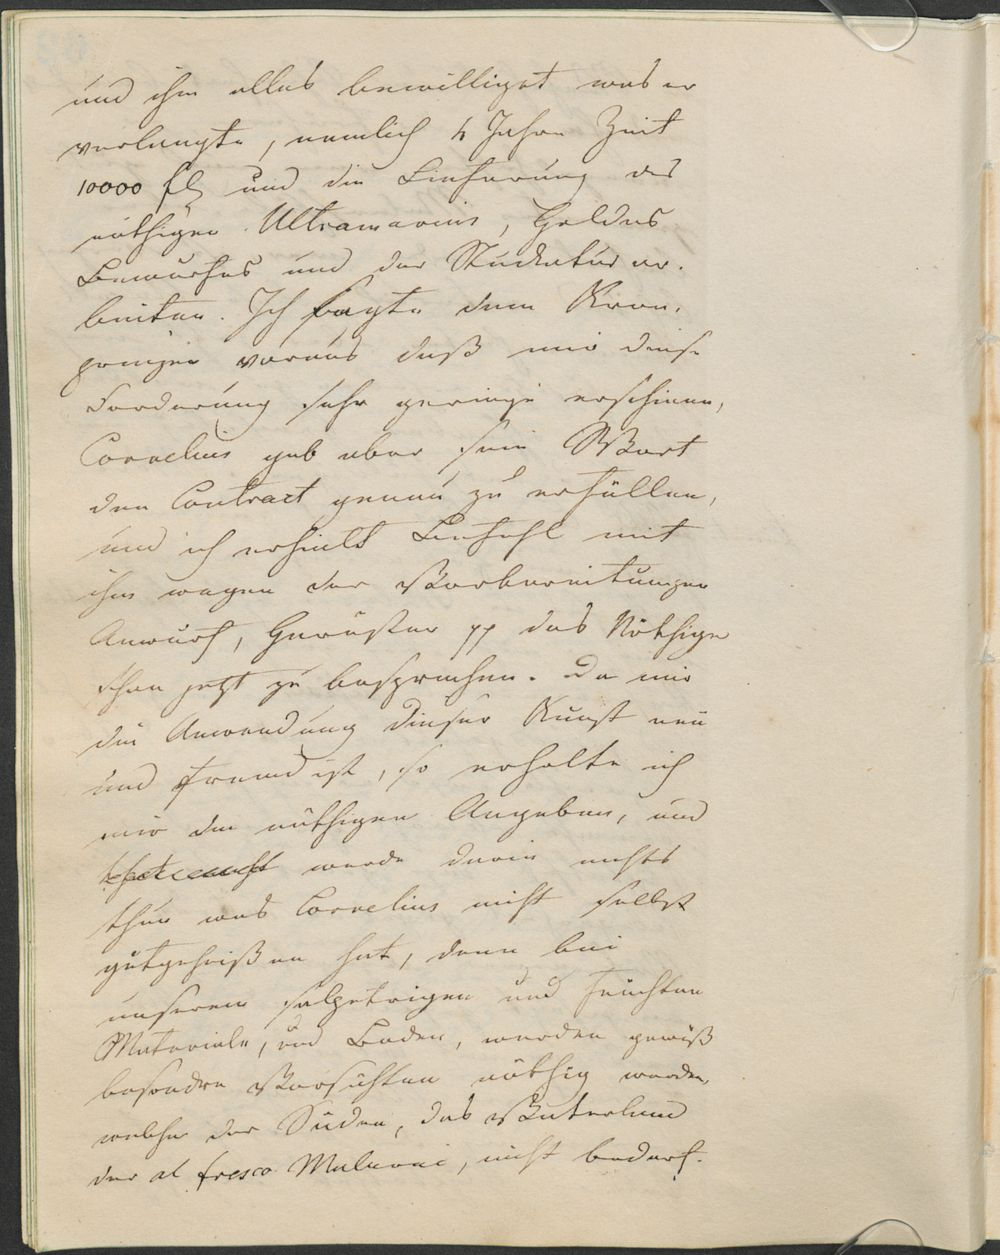 und ihm alles bewilligt was er
verlangte, nemlich 4 Jahre Zeit
10000 fl und die Lieferung des
nöthigen Ultramarins, Goldes
Bewurfes und der Stuckatur ar-
beiten. Ich sagte dem Kron-
prinzen voraus daß mir diese
Forderung sehr geringe erschiene,
Cornelius gab aber sein Wort
den Contract genau zu erfüllen,
und ich erhielt Befehl mit
ihm wegen der Vorbereitungen
Anwurf, Gerüsten pp das Nöthige
schon jetzt zu besprechen. Da mir
die Anwendung dieser Kunst neu
und fremd ist, so erholte ich
mir die nöthigen Angaben, und
werde darin nichts
thun was Cornelius nicht selbst
gutgeheißen hat, denn bei
unserem salpetrigen und feuchten
Materiale, und Boden, werden gewiß
besondre Vorsichten nöthig werden,
welche der Süden, das Vaterland
der al fresco Malerei, nicht bedarf.